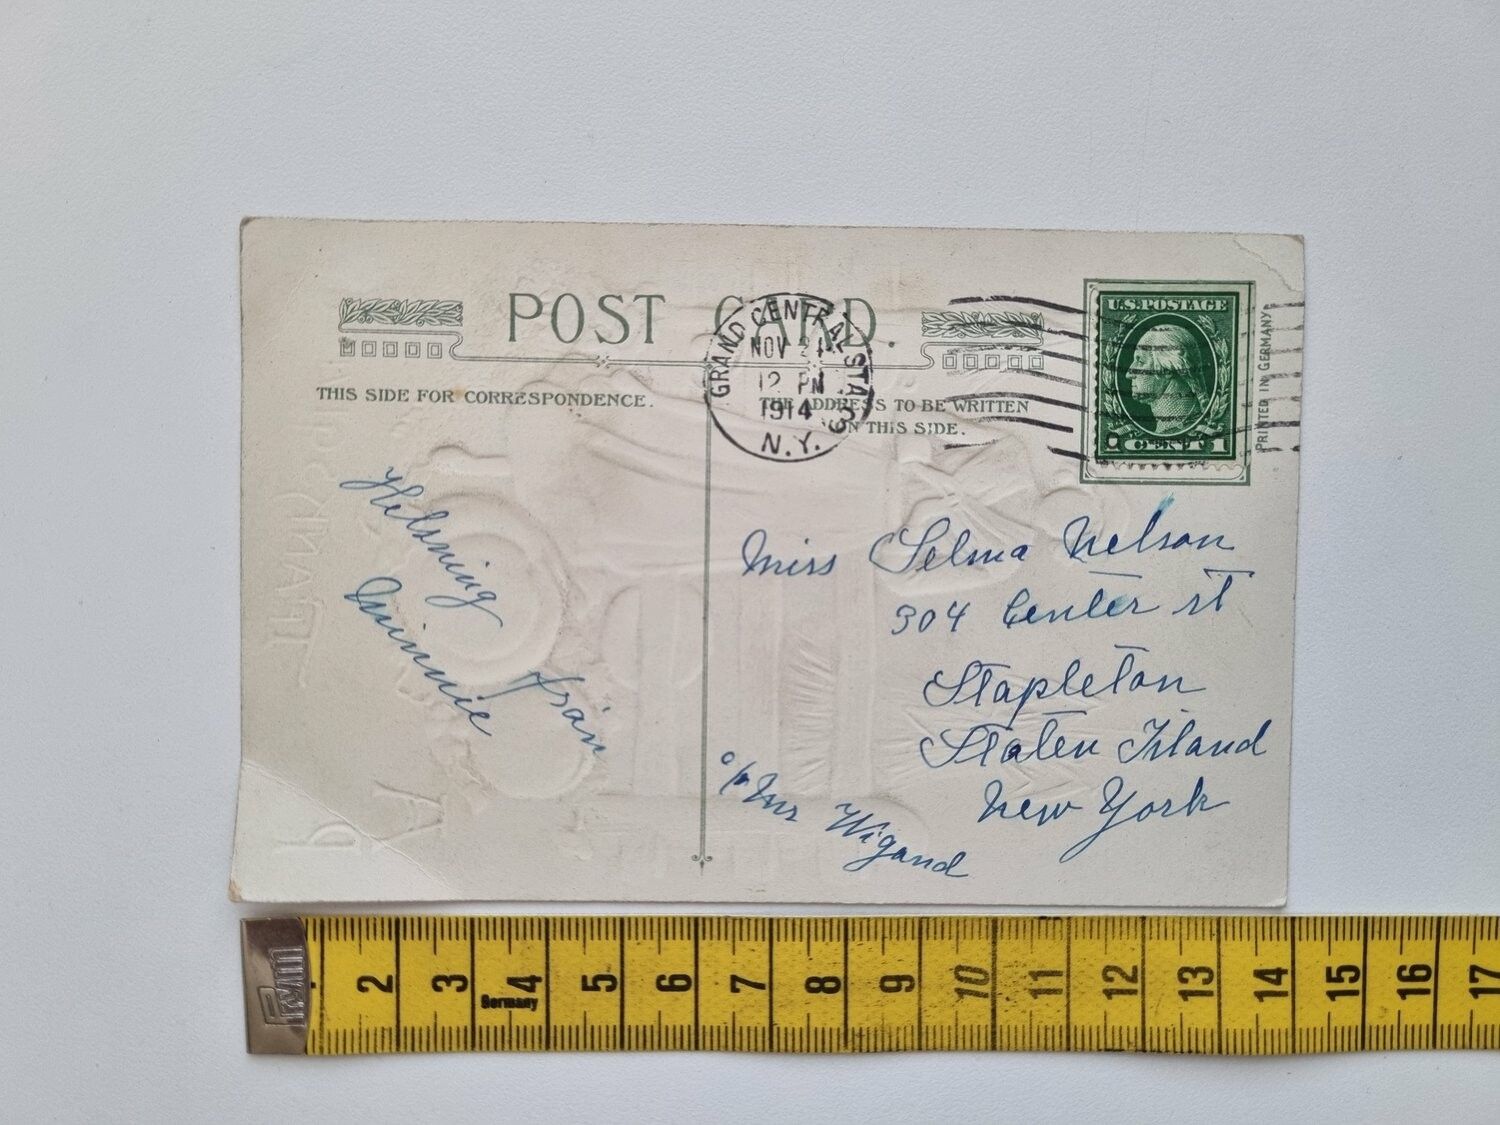 POST CARD.
THIS SIDE FOR CORRESPONDENCE.
THE ADDRESS TO BE WRITTEN
ON THIS SIDE.
GRAND CENTRAL STA.
NOV 21
12 PM
1914
N.Y.
U.S. POSTAGE
1 CENT 1
PRINTED IN GERMANY
Helsning
från
Minnie
Miss Selma Nelson
304 Center st
Stapleton
Staten Island
New York
c/o Mrs Wigand
THANKSGIVING
Prym
2 3 4 5 6 7 8 9 10 11 12 13 14 15 16 17
Germany